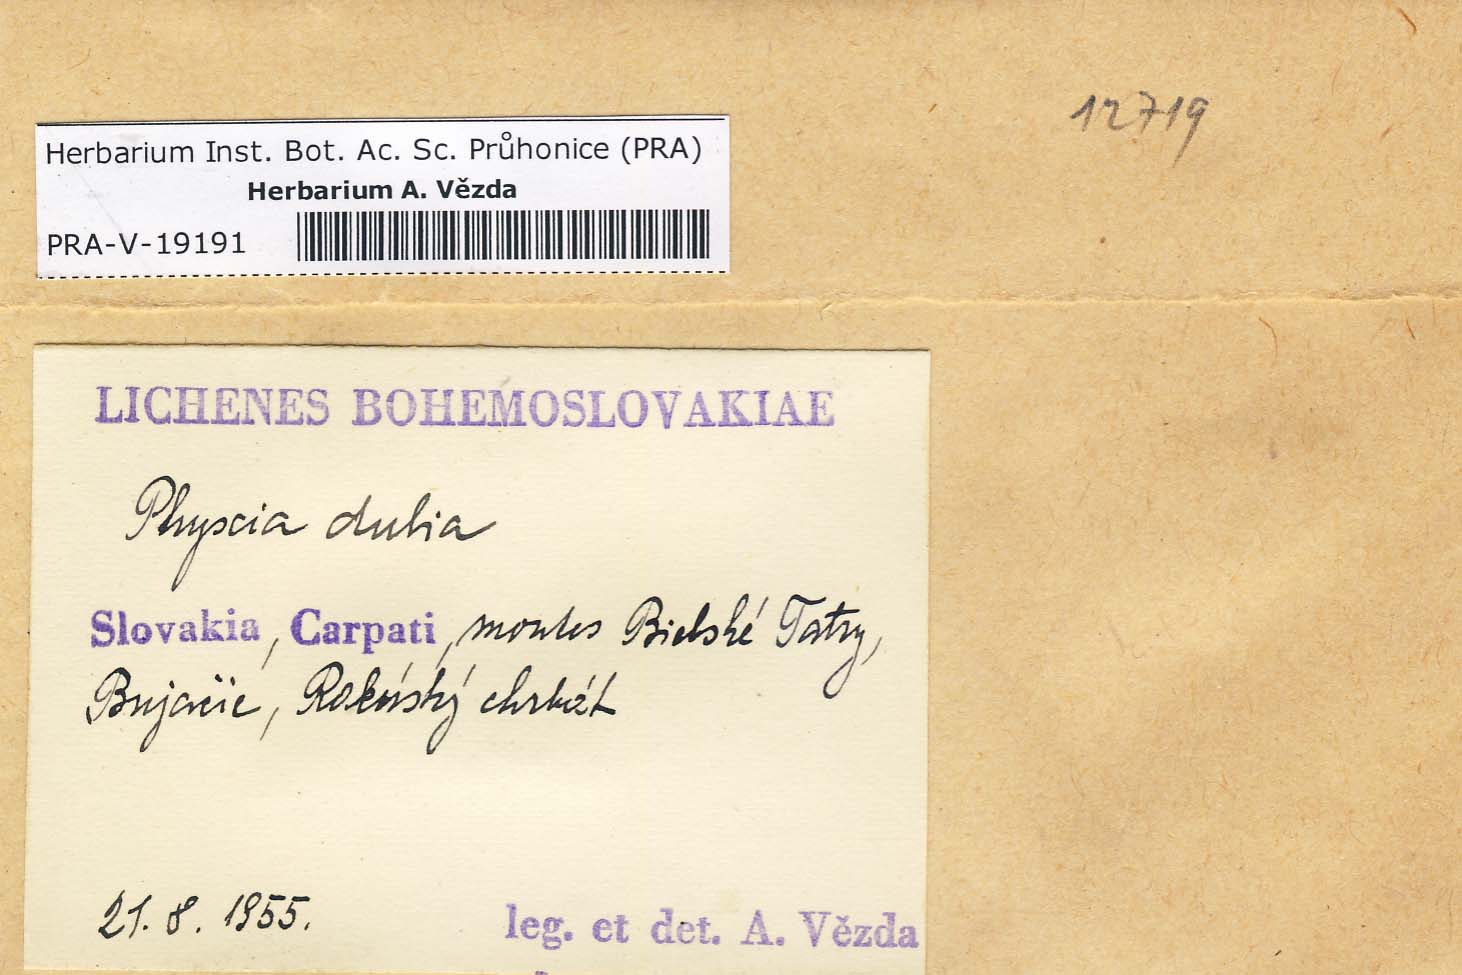 12719
Herbarium Inst. Bot. Ac. Sc. Průhonice (PRA)
Herbarium A. Vězda
PRA-V-19191
LICHENES BOHEMOSLOVAKIAE
Physcia dubia
Slovakia, Carpati, montes Bielské Tatry,
Bujačie, Rokúský chrbát
21. 8. 1955.
leg. et det. A. Vězda